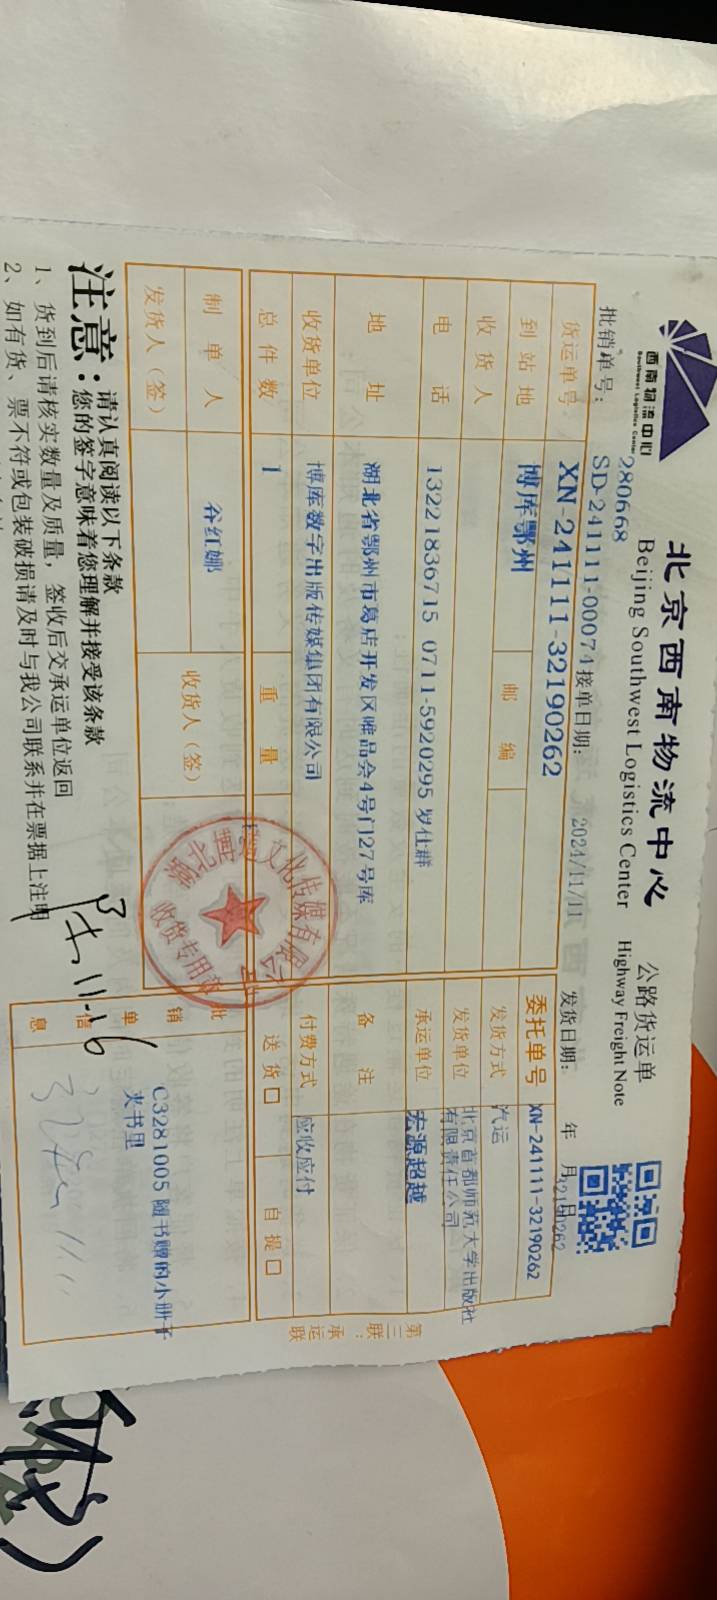 西南物流中心
Southwest Logistics Center
北京西南物流中心
公路货运单
Beijing Southwest Logistics Center
Highway Freight Note
280668
批销单号:
SD-241111-00074
接单日期:
2024/11/11
发货日期:
年 月 日
32190262
货运单号
XN-241111-32190262
委托单号
XN-241111-32190262
到站地
博库鄂州
邮编
发货方式
汽运
收货人
发货单位
北京首都师范大学出版社
有限责任公司
电话
13221836715 0711-5920295 罗仕群
承运单位
宏源超越
地址
湖北省鄂州市葛店开发区唯品会4号门27号库
备注
收货单位
博库数字出版传媒集团有限公司
付费方式
应收应付
总件数
1
重量
送货□
自提□
制单人
谷红娜
收货人(签)
发货人(签)
批销单信息
C3281005 随书赠的小册子
夹书里
第三联:承运联
收货专用章
注意:
请认真阅读以下条款
您的签字意味着您理解并接受该条款
1、货到后请核实数量及质量,签收后交承运单位返回
2、如有货、票不符或包装破损请及时与我公司联系并在票据上注明
11.16